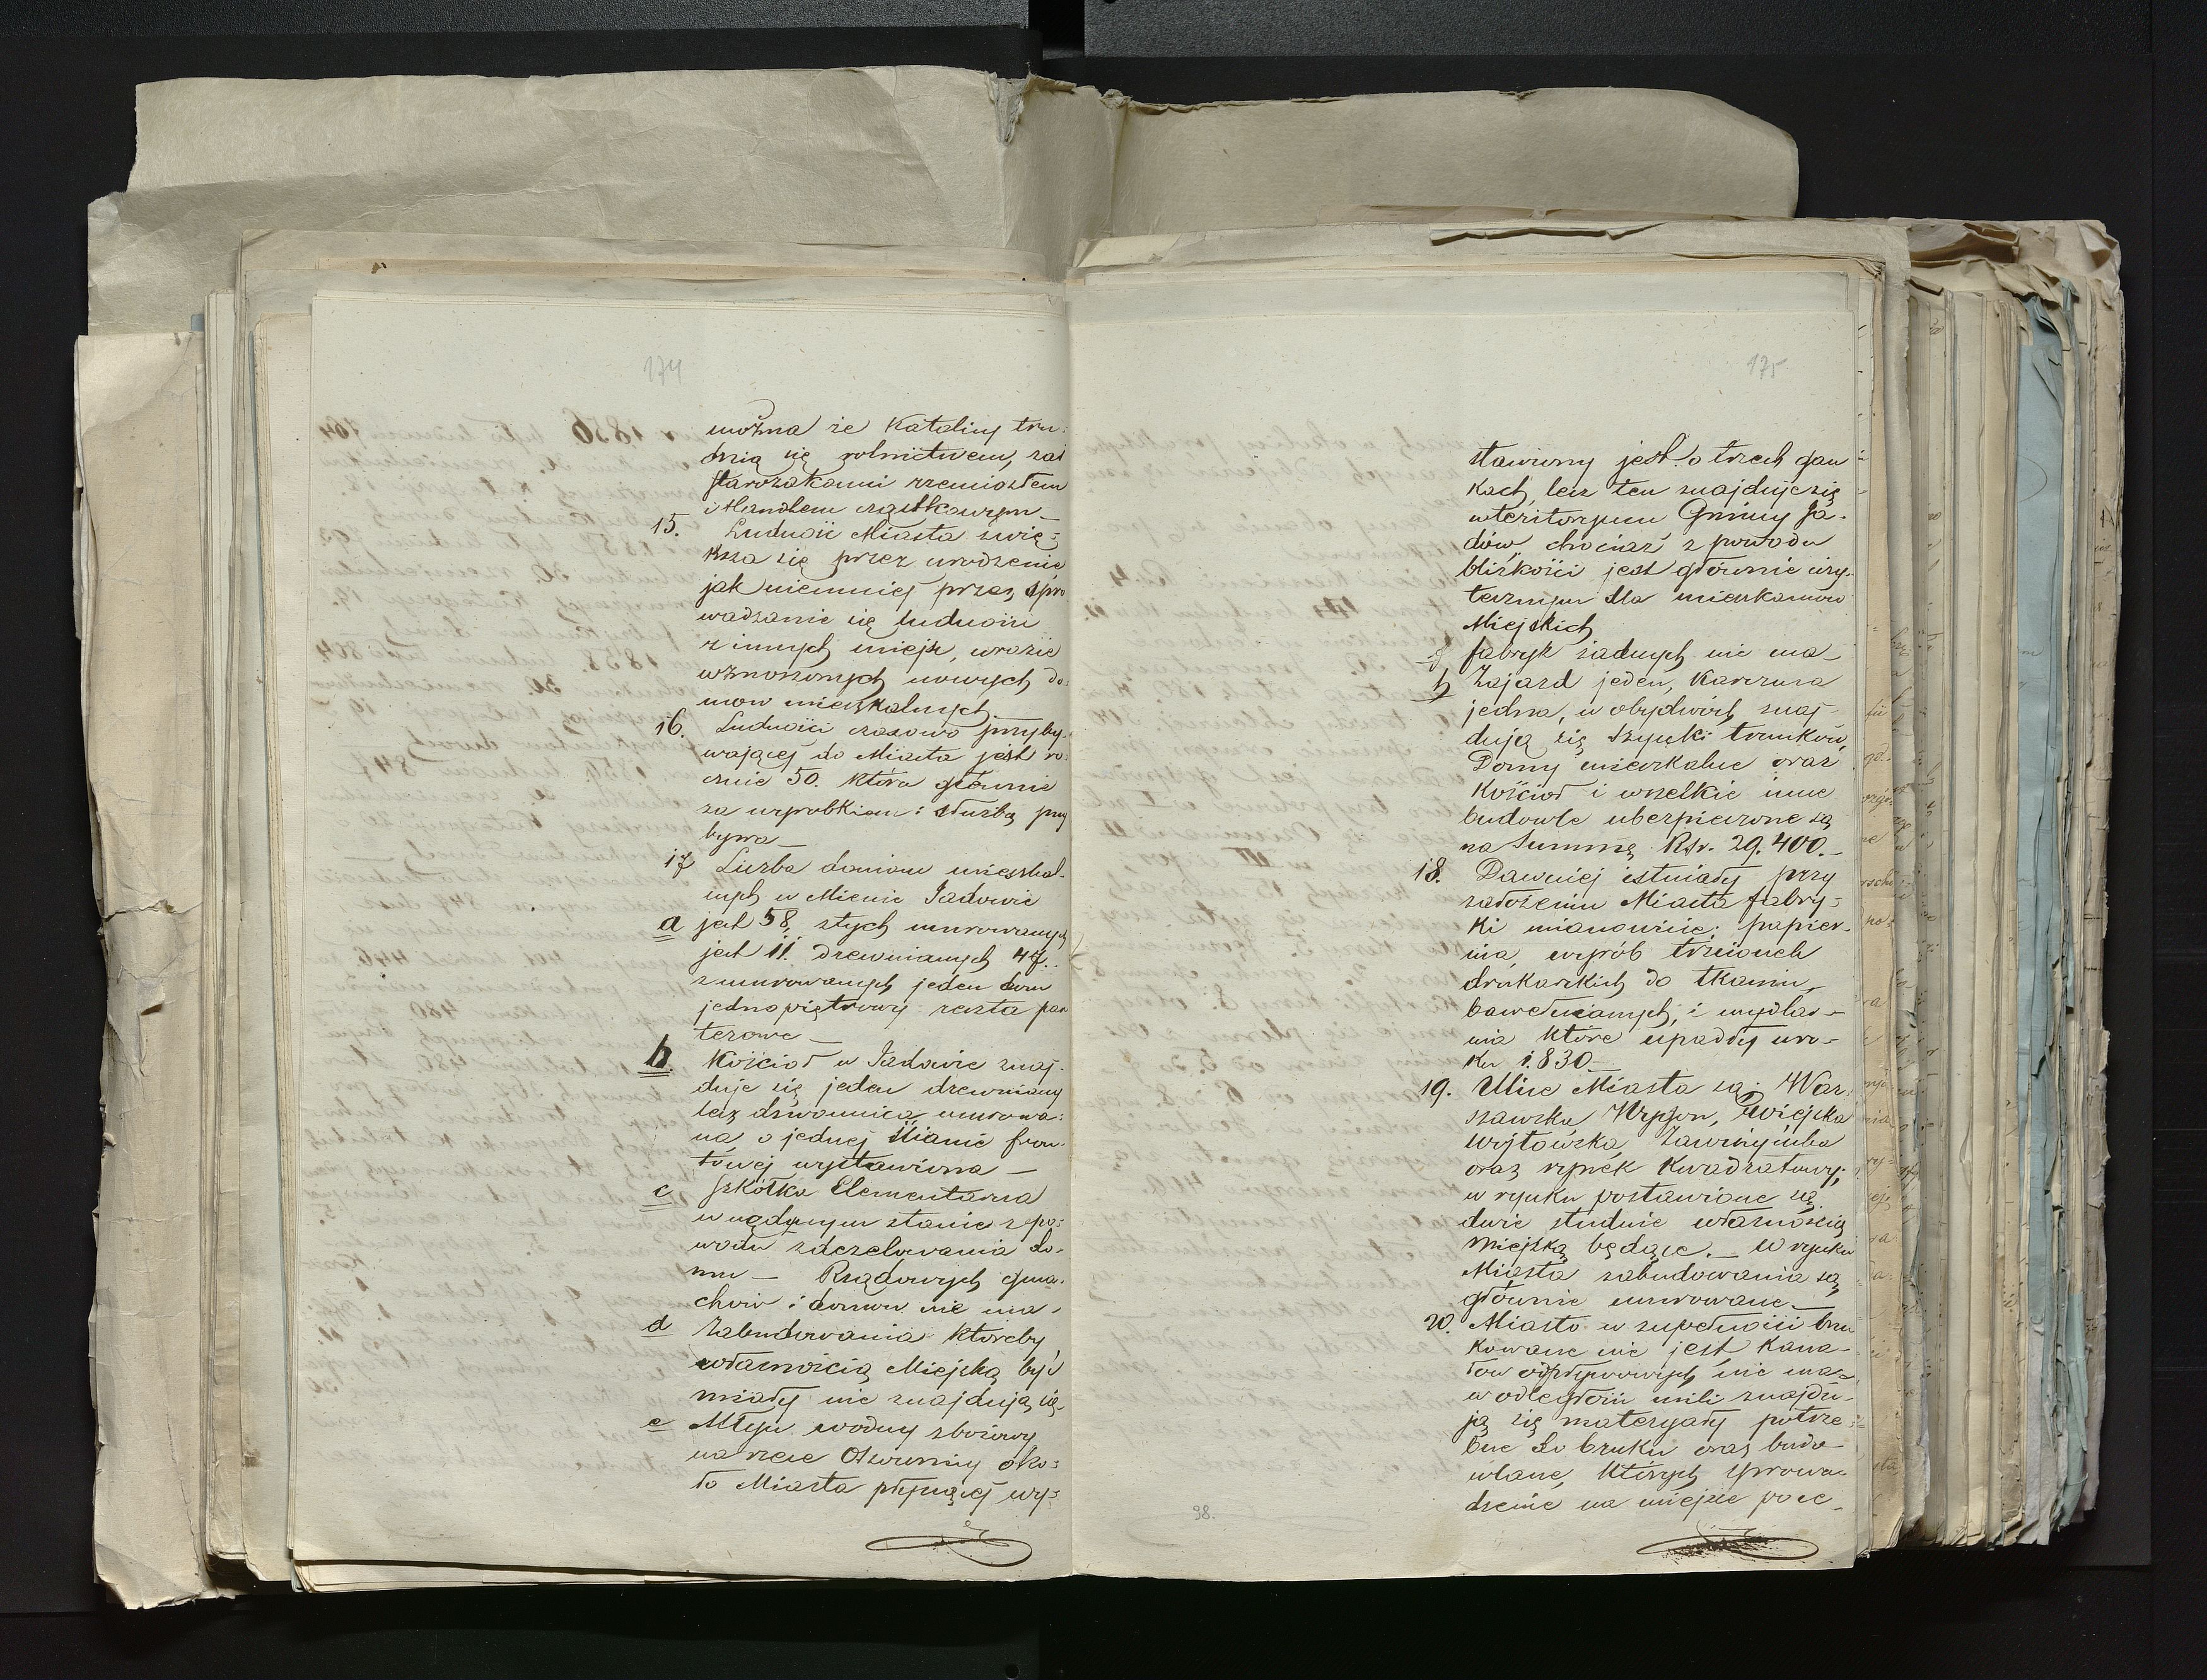 174
można że Katolicy tru:
dnią się rolnictwem, zaś
starozakonni rzemiosłem
i Handlem cząstkowym —
15. Ludność Miasta zwię:
ksza się przez urodzenie
jak niemniej przez spro
wadzanie się ludności
z innych miejsc, w razie
wznoszonych nowych do:
mow mieszkalnych.
16. Ludności czasowo przyby-
wającej do Miasta jest ro:
cznie 50. która głównie
za wyrobkiem i służbą przy
bywa —
17 Liczba domow mieszkal-
nych w Mieście Jadowie
a jest 58, z tych murowanych
jest 11. drewnianych 47.
z murowanych jeden dom
jednopiętrowy reszta par
terowe —
b. Kościoł w Jadowie znaj-
duje się jeden drewniany
lecz dzwonnica murowa:
na o jednej ścianie fron-
towej wystawiona —
c Szkółka Elementarna
w nędznym stanie z po:
wodu zdezelowania do-
mu — Rządowych gma-
chów i domow nie ma,
d Zabudowania któreby
własnością Miejską być
miały nie znajdują się.
e Młyn wodny zbożowy
na rzece Osownicy oko:
ło Miasta płynącej wy:
175
stawiony jest o trzech gan
kach, lecz ten znajduje się
w teritoryum Gminy Ja-
dów, chociaż z powodu
bliskości jest głównie uży-
tecznym dla mieszkancow
Miejskich
f fabryk żadnych nie ma —
h Zajazd jeden, Karczma
jedna, w obydwóch znaj-
dują się szynki trunków,
Domy mieszkalne oraz
Kościoł i wszelkie inne
budowle ubezpieczone są
na Summę Rsr. 29.400. —
18. Dawniej istniały przy
założeniu Miasta fabry:
ki mianowicie: papier-
nia, wyrób trzcionek
drukarskich do tkanin
bawełnianych, i mydlar-
nia które upadły w ro-
ku 1830 —
19. Ulice Miasta są: War:
szawska, Wygon, Wiejska
Wójtowska,
oraz rynek kwadratowy,
w rynku postawione są
dwie studnie własnością
miejską będące. — W rynku
Miasta zabudowania są
głównie murowane —
20. Miasto w zupełności bru
kowane nie jest kana-
łow odpływowych nie ma —
w odległości mili znajdu-
ją się materyały potrze:
bne do bruku oraz budo-
wlane, których sprowa-
dzenie na miejsce poje-
98.